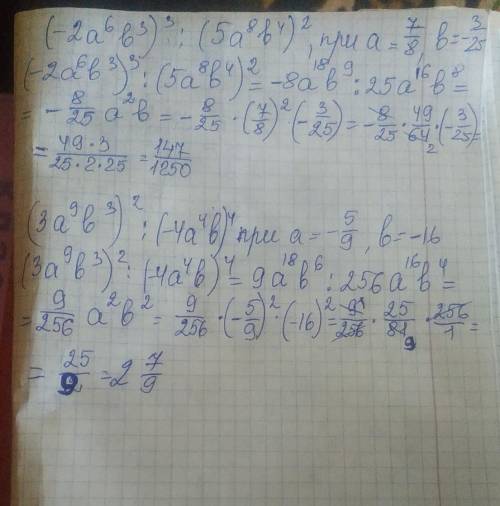 (-2a⁶b³)³ : (5a⁸b⁴)², при a = 7/8, b = -3/25
(-2a⁶b³)³ : (5a⁸b⁴)² = -8a¹⁸b⁹ : 25a¹⁶b⁸ =
= -8/25 a²b = -8/25 · (7/8)² · (-3/25) = -8/25 · 49/64 2 · (-3/25) =
= 49·3/25·2·25 = 147/1250
(3a⁹b³)² : (-4a⁴b)⁴ при a = -5/9, b = -16
(3a⁹b³)² : (-4a⁴b)⁴ = 9a¹⁸b⁶ : 256a¹⁶b⁴ =
= 9/256 a²b² = 9/256 · (-5/9)² · (-16)² = 9/256 · 25/81 9 · 256/1 =
= 25/9 = 2 7/9